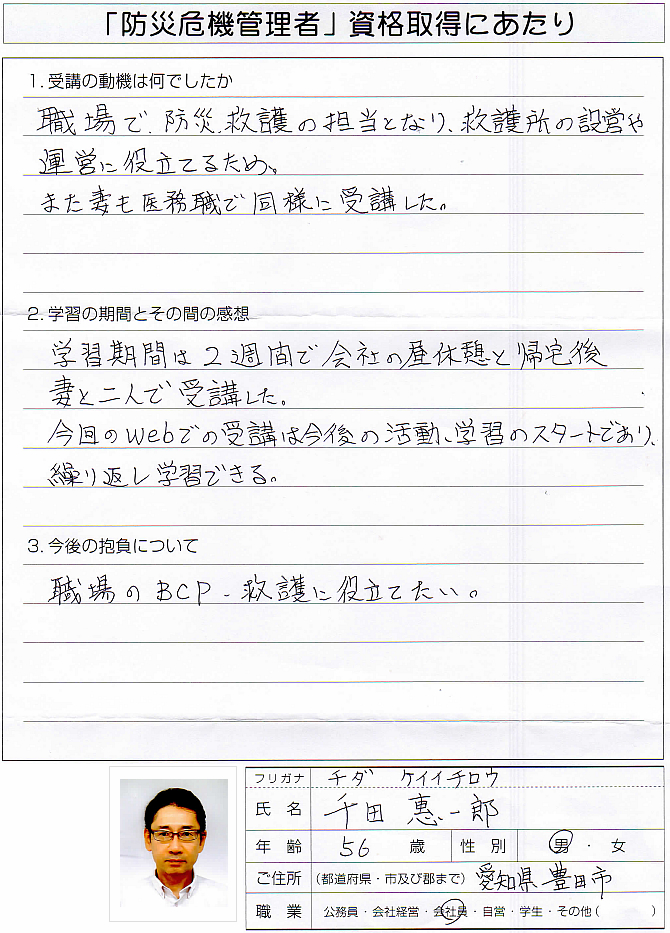 「防災危機管理者」資格取得にあたり
1. 受講の動機は何でしたか
職場で、防災、救護の担当となり、救護所の設営や
運営に役立てるため。
また妻も医務職で同様に受講した。
2. 学習の期間とその間の感想
学習期間は2週間で会社の昼休憩と帰宅後
妻と二人で受講した。
今回のWebでの受講は今後の活動、学習のスタートであり、
繰り返し学習できる。
3. 今後の抱負について
職場のBCP-救護に役立てたい。
フリガナ チダ ケイイチロウ
氏名 千田 惠一郎
年齢 56 歳 性別 男・女
ご住所 (都道府県・市及び郡まで) 愛知県豊田市
職業 公務員・会社経営・会社員・自営・学生・その他( )